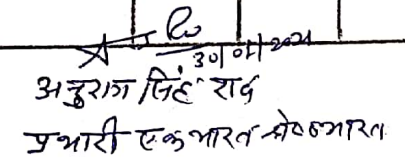 30/01/2021
अनुराग सिंह राई
प्रभारी एक भारत श्रेष्ठ भारत